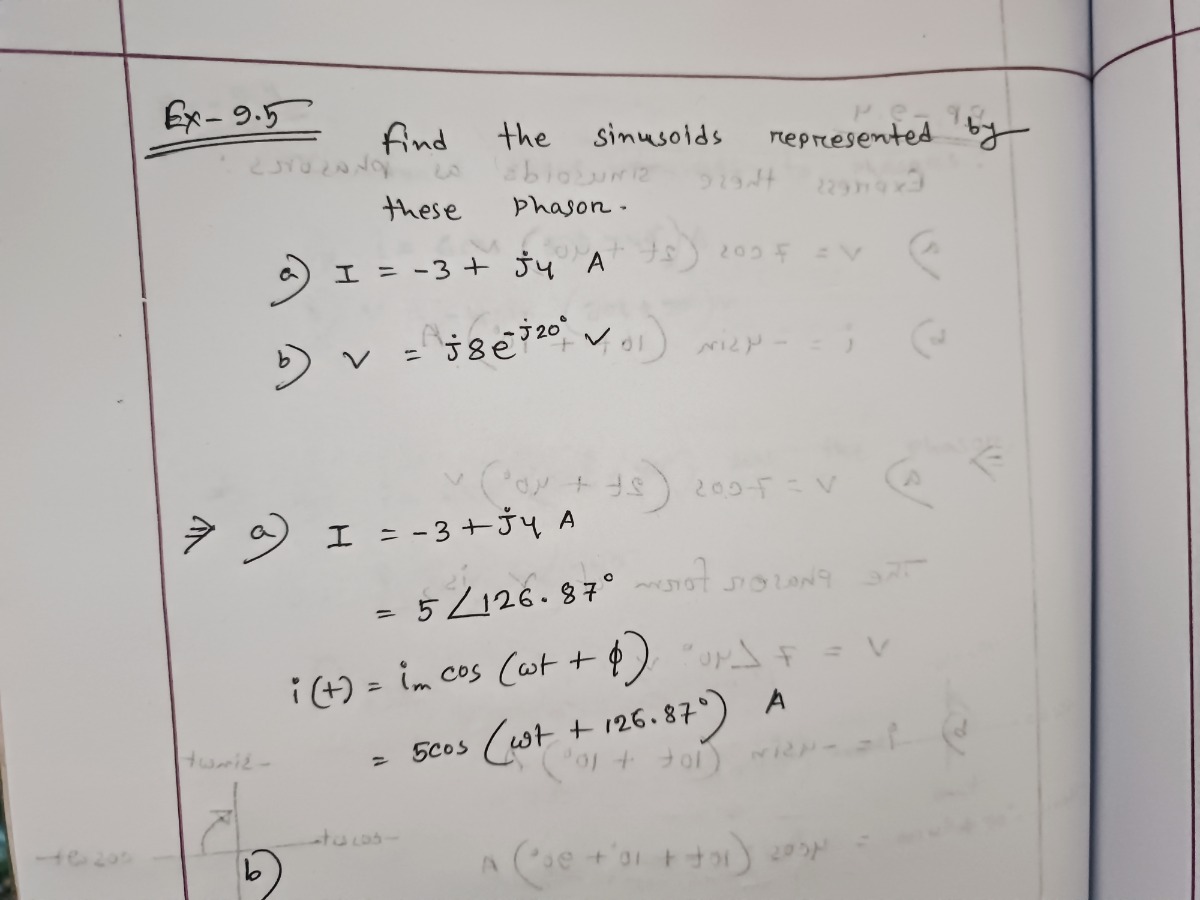 Ex - 9.5
find the sinusoids represented by
these phason.
a) I = -3 + j4 A
b) V = j8e^{-j20°} V
⇒ a) I = -3 + j4 A
= 5 ∠126.87°
i(t) = i_m cos (ωt + ϕ)
= 5cos (ωt + 126.87°) A
b)